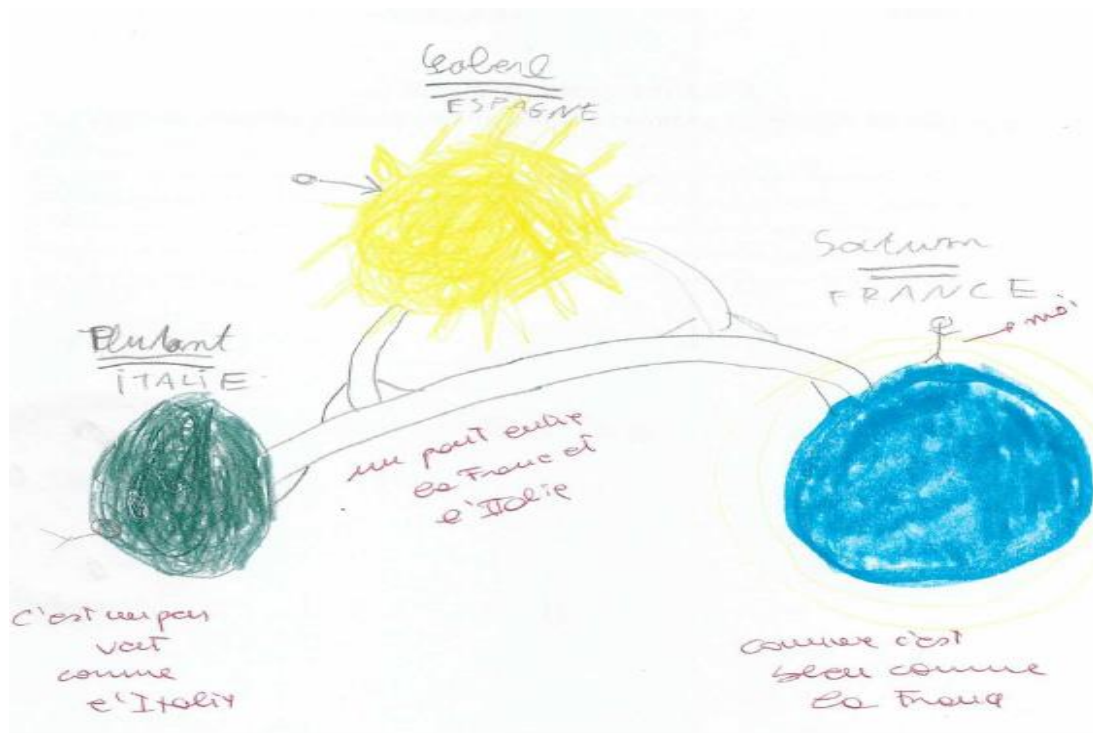 ESPAGNE
Saturn
FRANCE
moi
Plutant
iTALIE
un pont entre
la Franc et
l'Italie
c'est un peu
vert
comme
l'Italie
comme c'est
bleu comme
la France